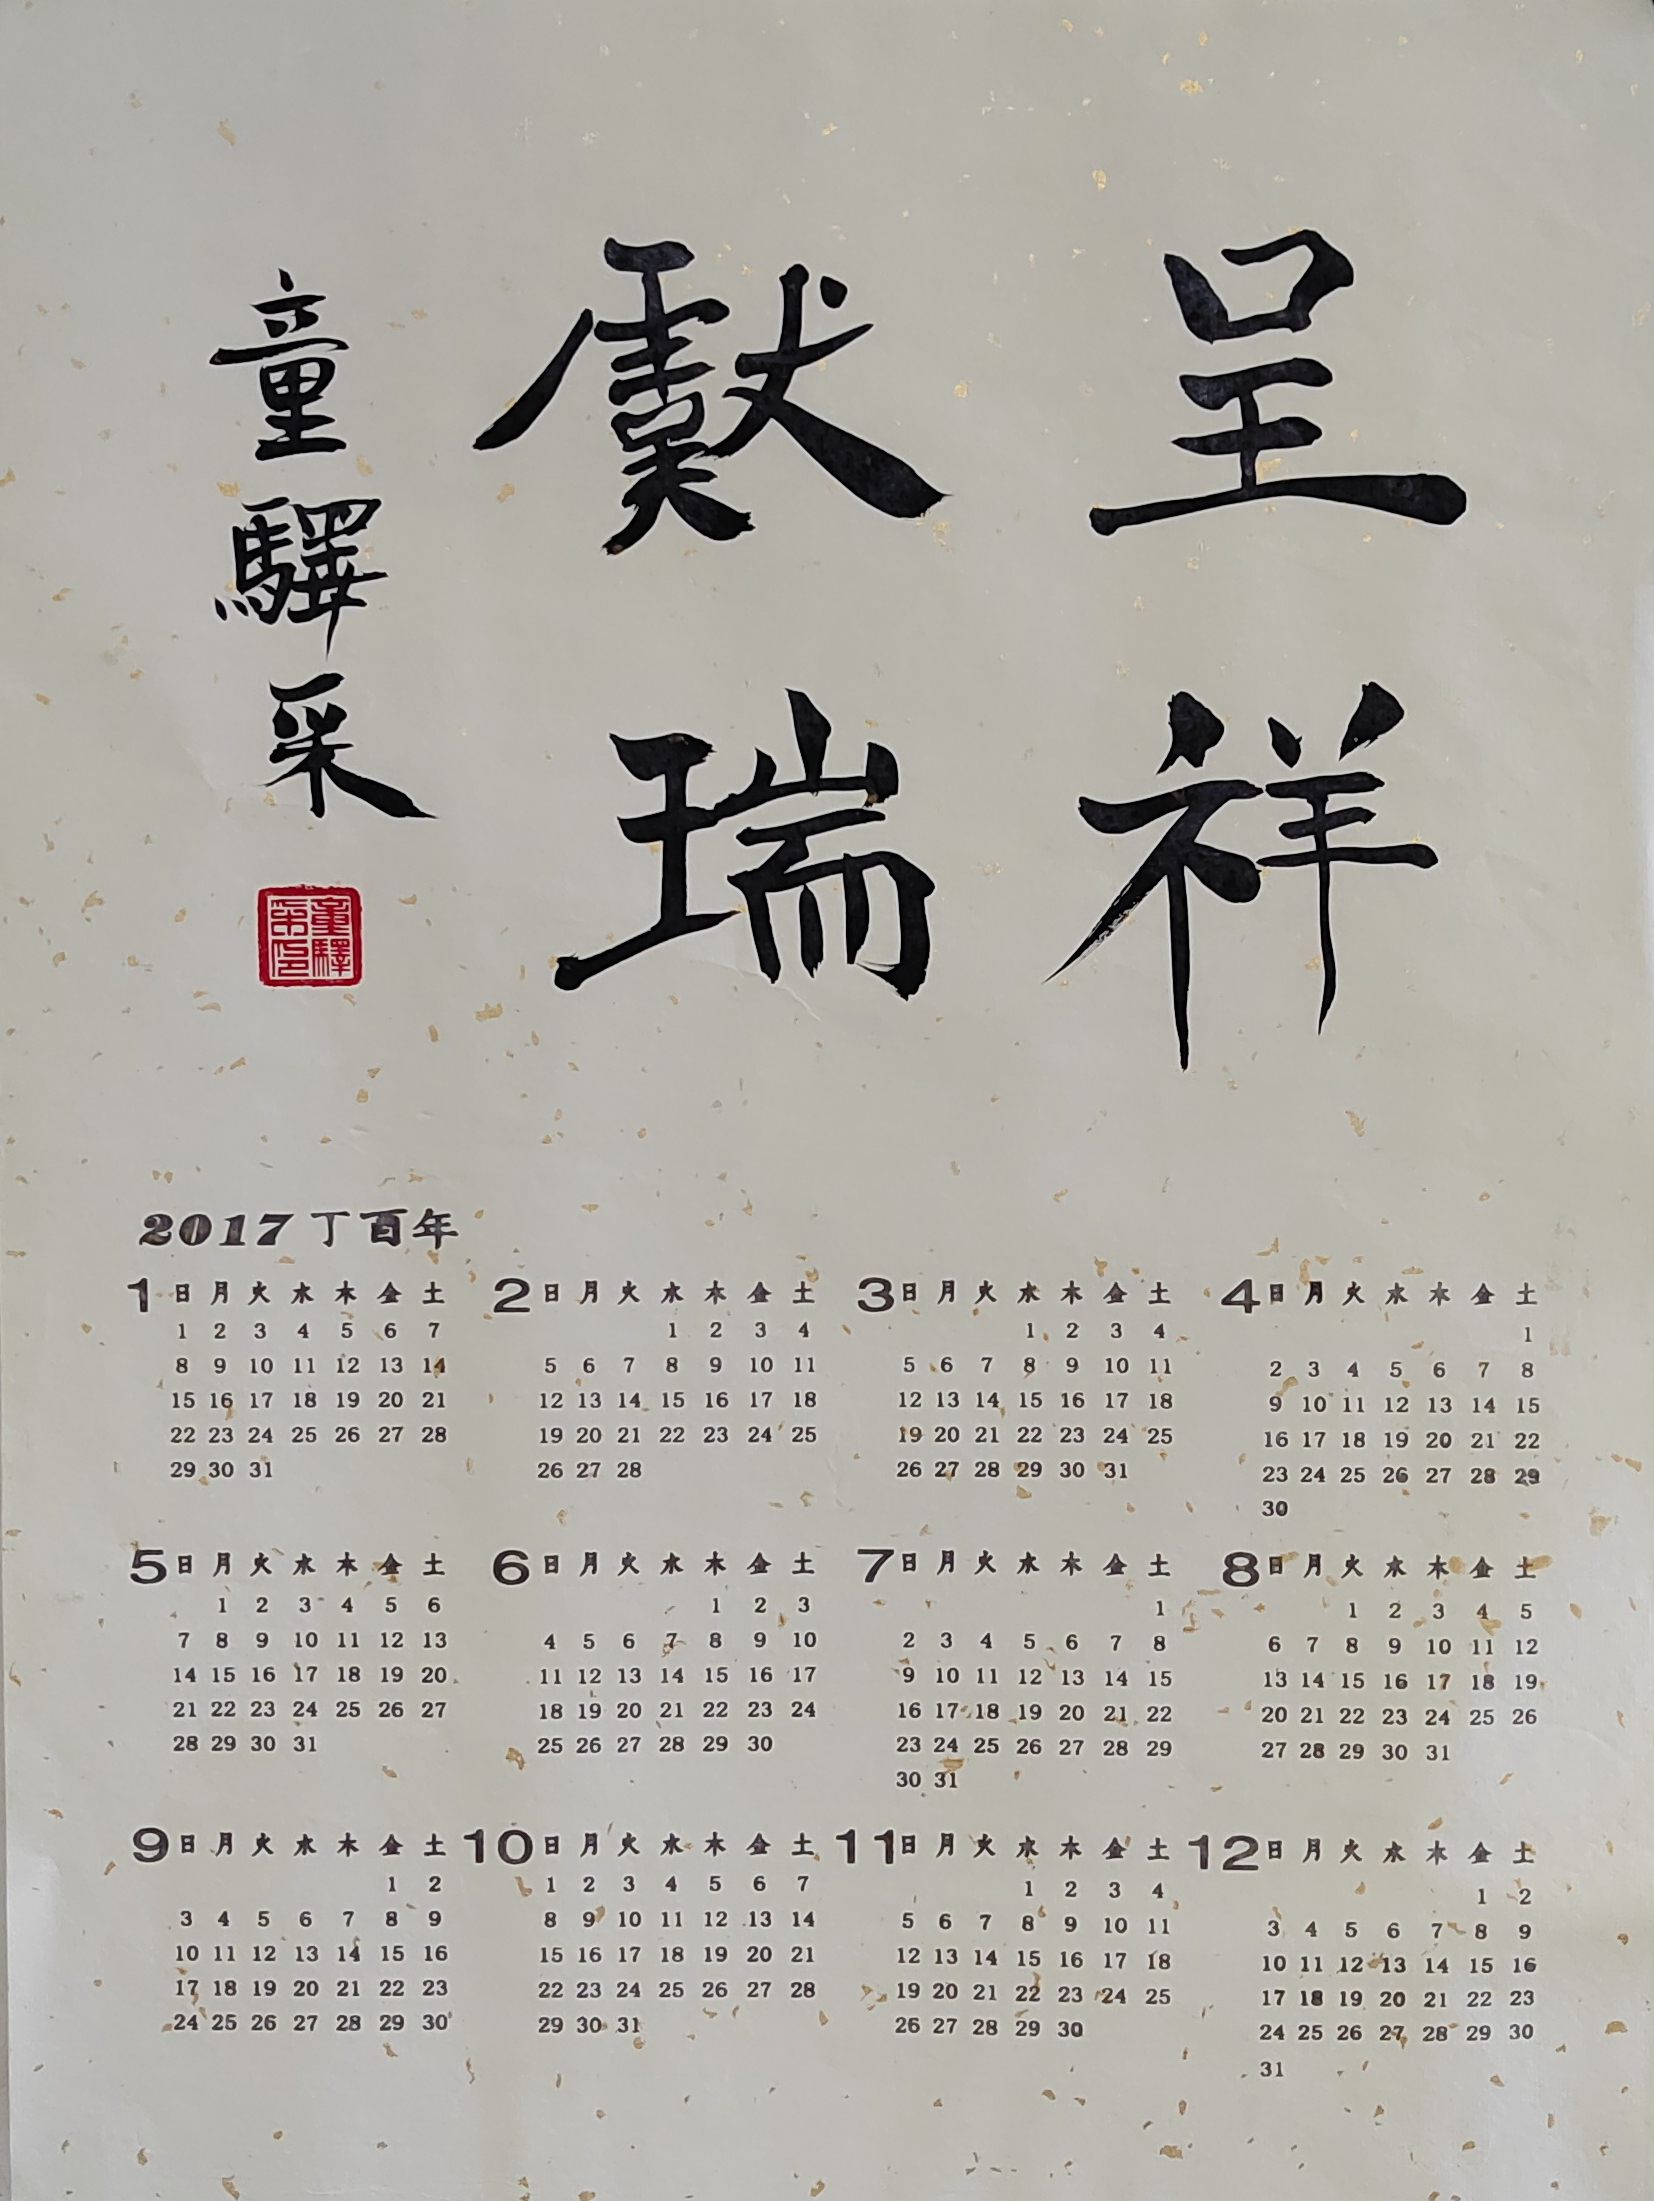 呈祥
獻瑞
童驛采
童驛
采印
2017 丁酉年
1 日 月 火 水 木 金 土
1 2 3 4 5 6 7
8 9 10 11 12 13 14
15 16 17 18 19 20 21
22 23 24 25 26 27 28
29 30 31
2 日 月 火 水 木 金 土
1 2 3 4
5 6 7 8 9 10 11
12 13 14 15 16 17 18
19 20 21 22 23 24 25
26 27 28
3 日 月 火 水 木 金 土
1 2 3 4
5 6 7 8 9 10 11
12 13 14 15 16 17 18
19 20 21 22 23 24 25
26 27 28 29 30 31
4 日 月 火 水 木 金 土
1
2 3 4 5 6 7 8
9 10 11 12 13 14 15
16 17 18 19 20 21 22
23 24 25 26 27 28 29
30
5 日 月 火 水 木 金 土
1 2 3 4 5 6
7 8 9 10 11 12 13
14 15 16 17 18 19 20
21 22 23 24 25 26 27
28 29 30 31
6 日 月 火 水 木 金 土
1 2 3
4 5 6 7 8 9 10
11 12 13 14 15 16 17
18 19 20 21 22 23 24
25 26 27 28 29 30
7 日 月 火 水 木 金 土
1
2 3 4 5 6 7 8
9 10 11 12 13 14 15
16 17 18 19 20 21 22
23 24 25 26 27 28 29
30 31
8 日 月 火 水 木 金 土
1 2 3 4 5
6 7 8 9 10 11 12
13 14 15 16 17 18 19
20 21 22 23 24 25 26
27 28 29 30 31
9 日 月 火 水 木 金 土
1 2
3 4 5 6 7 8 9
10 11 12 13 14 15 16
17 18 19 20 21 22 23
24 25 26 27 28 29 30
10 日 月 火 水 木 金 土
1 2 3 4 5 6 7
8 9 10 11 12 13 14
15 16 17 18 19 20 21
22 23 24 25 26 27 28
29 30 31
11 日 月 火 水 木 金 土
1 2 3 4
5 6 7 8 9 10 11
12 13 14 15 16 17 18
19 20 21 22 23 24 25
26 27 28 29 30
12 日 月 火 水 木 金 土
1 2
3 4 5 6 7 8 9
10 11 12 13 14 15 16
17 18 19 20 21 22 23
24 25 26 27 28 29 30
31